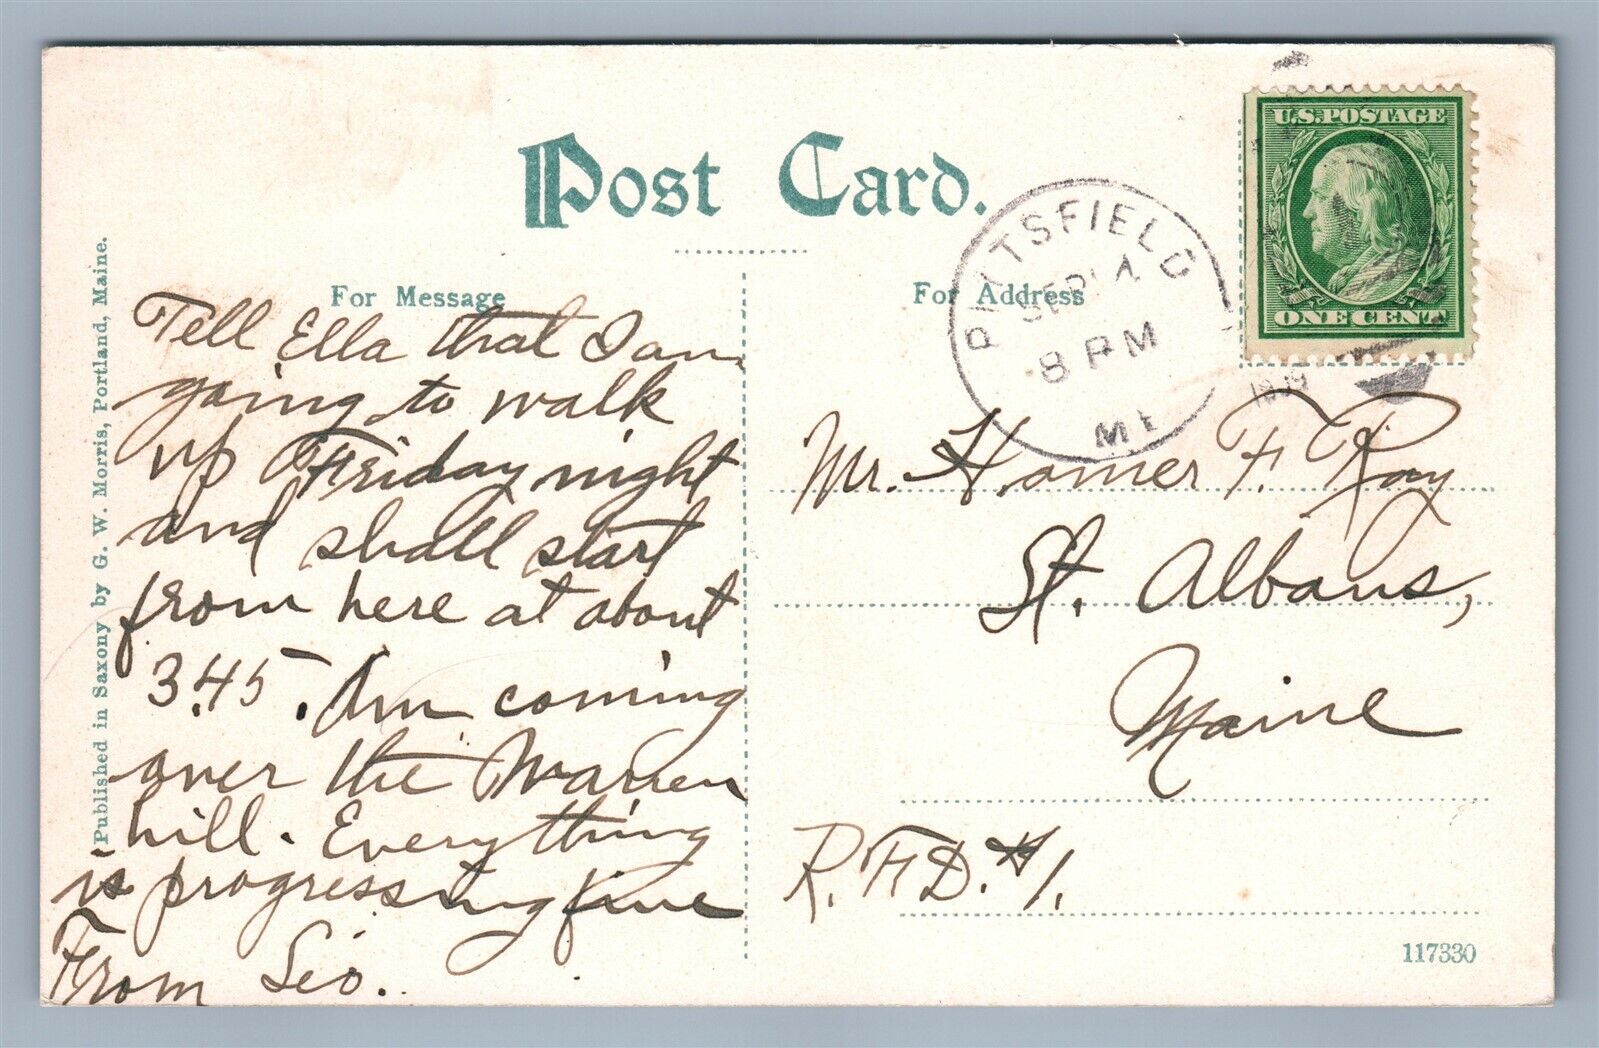 Post Card.
For Message
For Address
U.S. POSTAGE
ONE CENT
PITTSFIELD
SEP
8 PM
ME
Tell Ella that I am
going to walk
up Friday night
and shall start
from here at about
3.45. Am coming
over the Warren
hill. Everything
is progressing fine
From Leo.
Mr. Homer F. Ray
St. Albans,
Maine
R.F.D. #1.
Published in Saxony by G. W. Morris, Portland, Maine.
117330